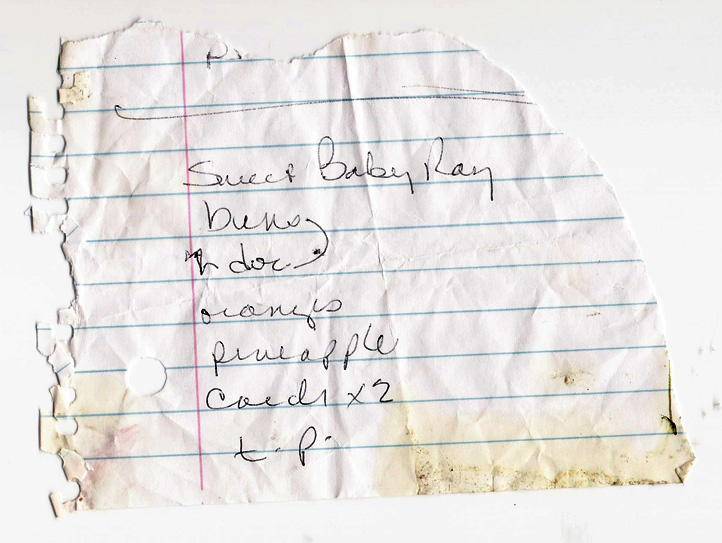 Sweet Baby Ray
buns
h dog
oranges
pineapple
cards x2
t.p.